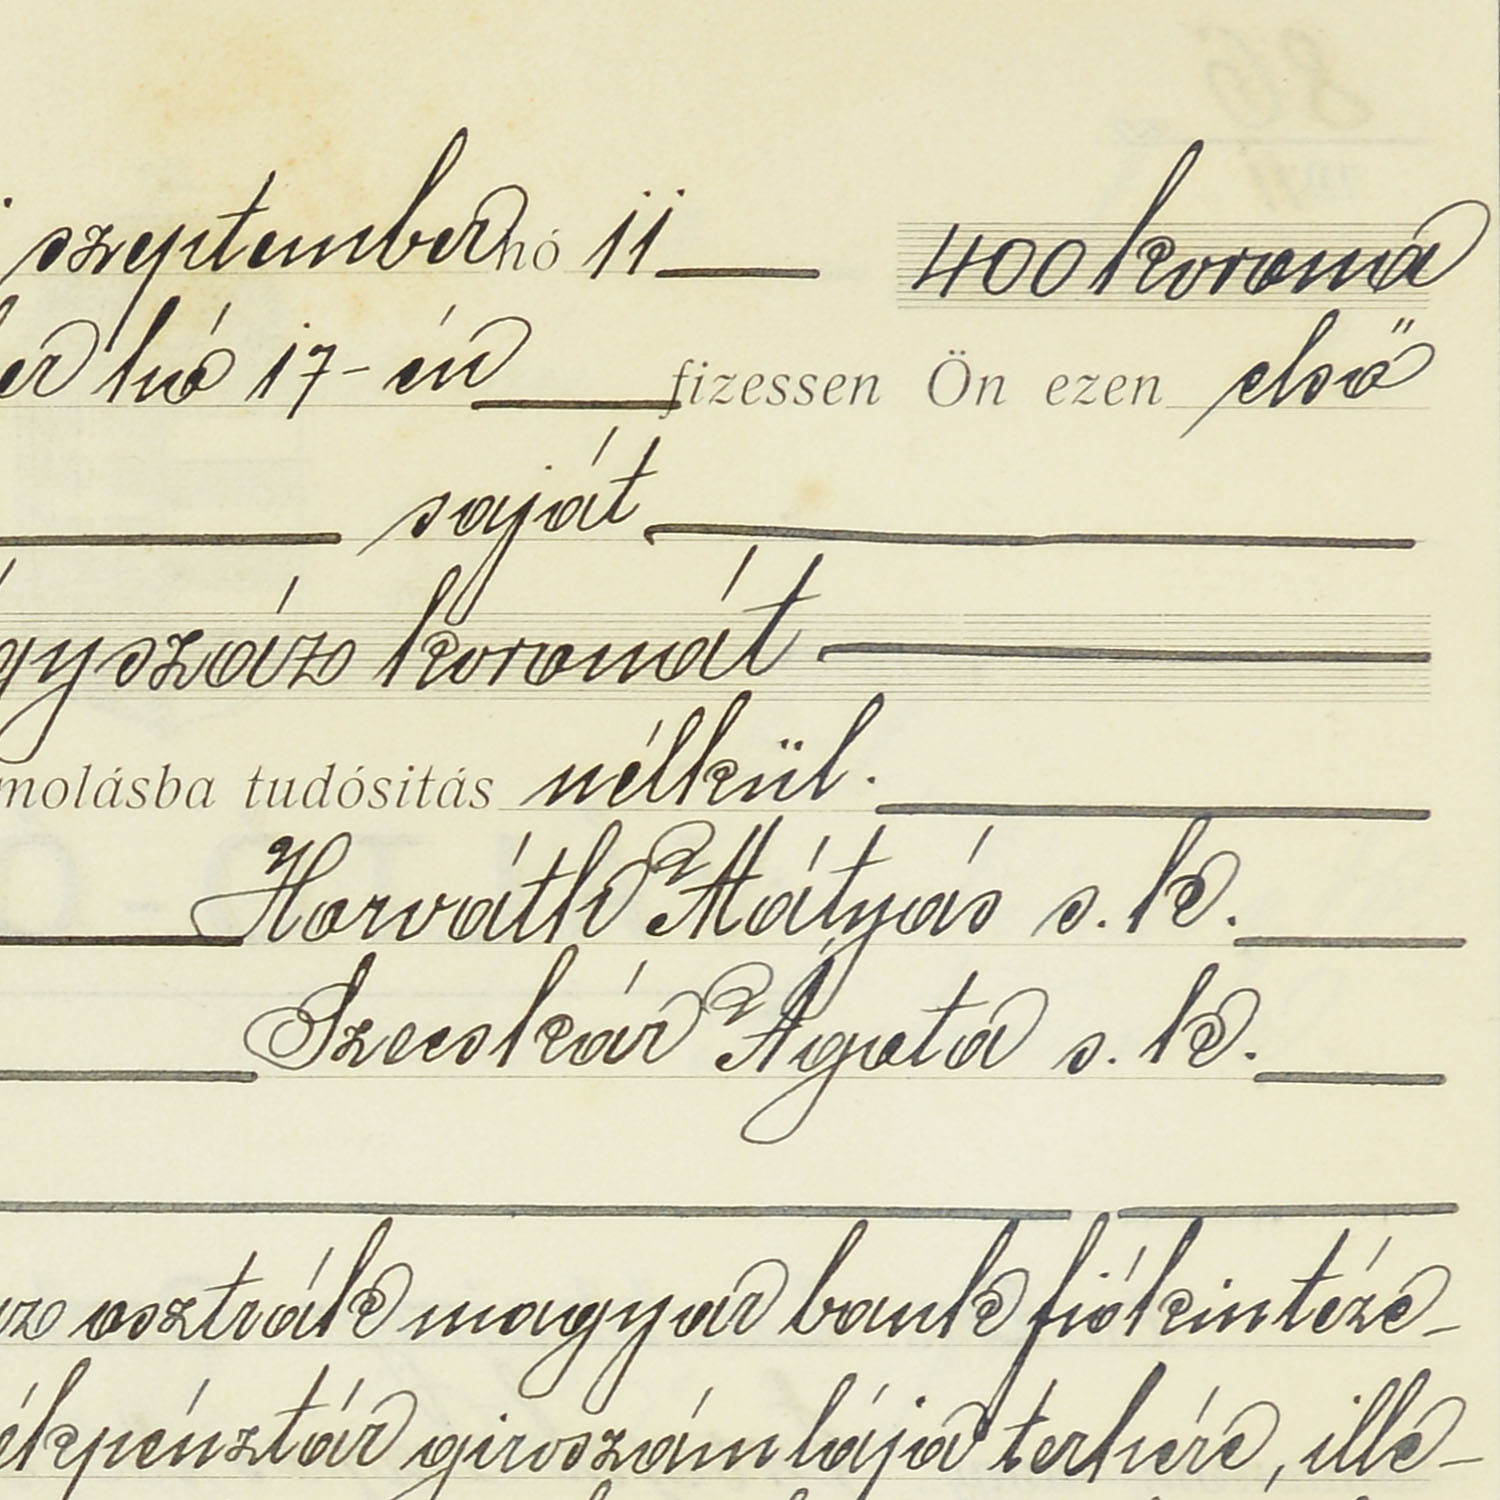 szeptember hó 11 400 korona
hó 17-én fizessen Ön ezen első
saját
koronát
tudósitás nélkül.
Horváth Mátyás s. k.
Szecskár Ágota s. k.
osztrák magyar bank fiókintéze-
giroszámlája terhére, ille-